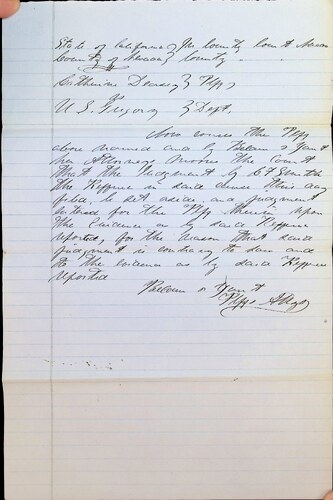 State of California } In County Court
County of } County
Catherine } Plff
vs
U S Gregory } Deft.
Now comes the Plff
above named and by
her Attorneys moves the Court
that the Judgment by C F
the Refferee in said cause this day
filed be set aside and Judgment
entered for the Plff upon
the Evidence as by said Refferee
reported, for the reason that said
Judgment is contrary to law and
to the evidence as by said Refferee
reported
Plffs Attys